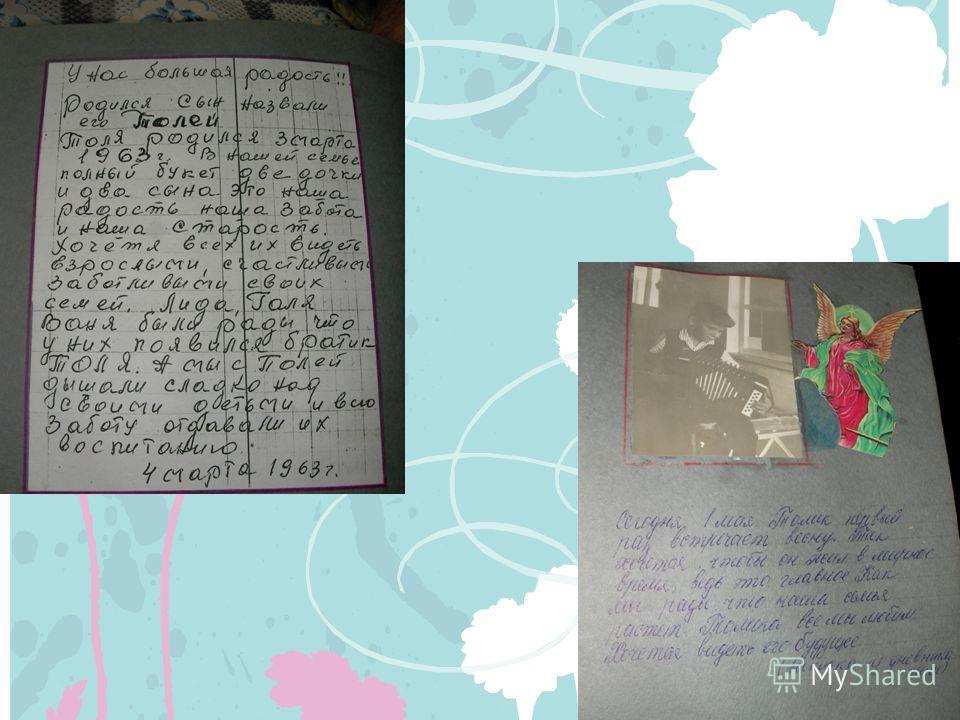 У нас большая радость!!
Родился сын назвали
его Толей
Толя родился 3 марта
1963 г. В нашей семье
полный букет две дочки
и два сына это наша
радость наша забота
и наша старость.
Хочетя всех их видеть
взрослыми, счастливыми
заботливыми своих
семей. Лида, Галя
Ваня были рады что
у них появился братик
ТОЛЯ. А мы с Полей
дышали сладко над
своими детьми и всю
заботу отдавали их
воспитанию.
4 марта 1963 г.
Сегодня, 1 мая Толик первый
раз встричает весну. Так
хочется, чтобы он жил в мирное
время, ведь это главное. Как
мы рады что наша семья
растет. Толика все мы любим.
Хочется видеть его будущее
дневника
MyShared